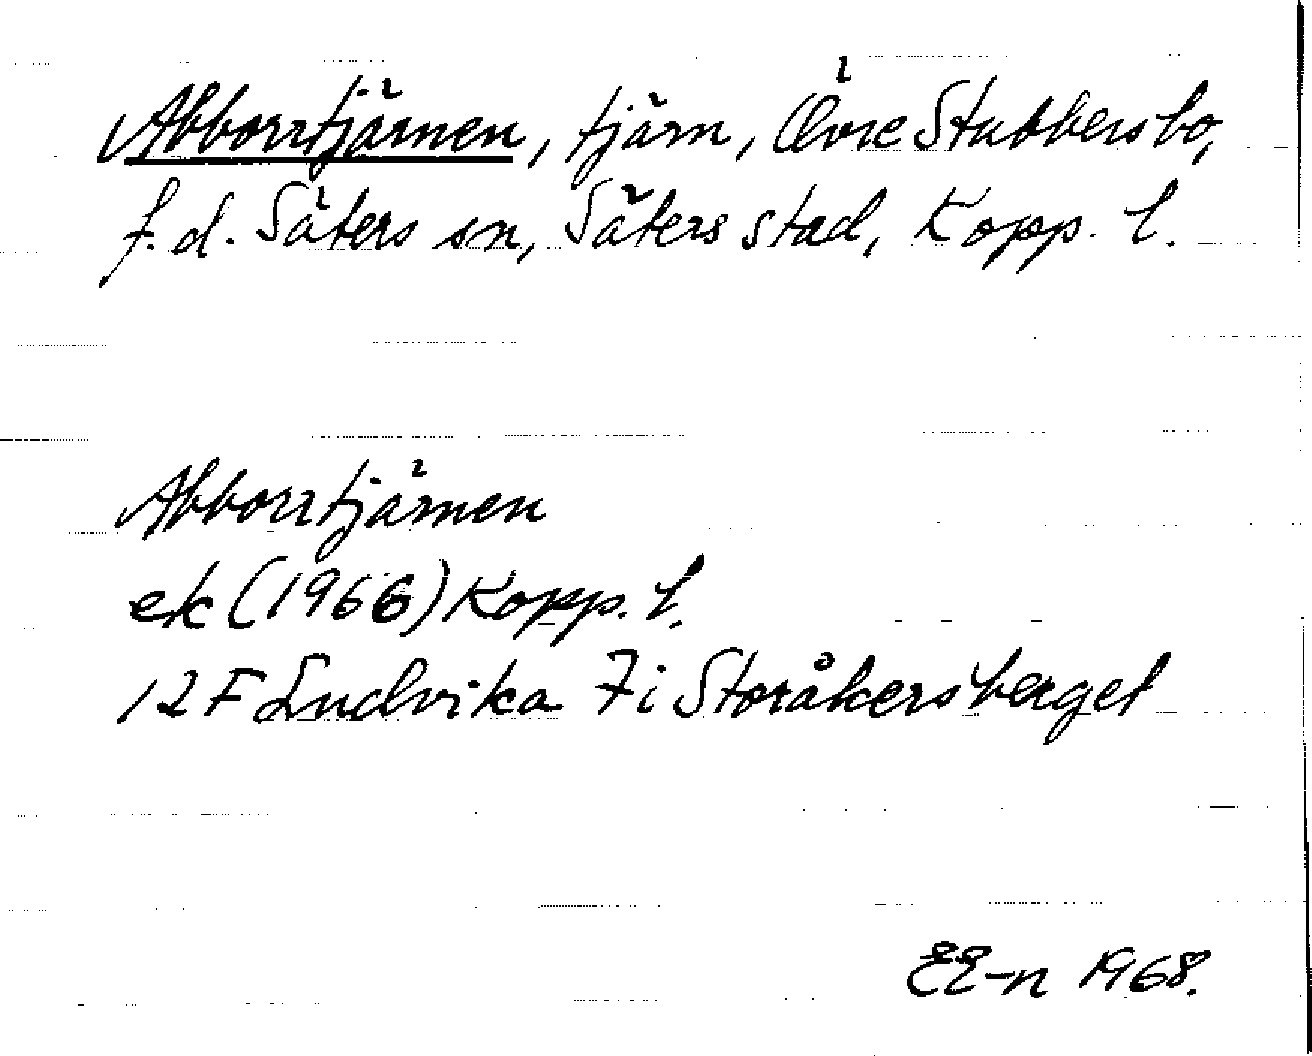 Abborrtjärnen, tjärn, Övre Stubbersbo,
f.d. Säters sn, Säters stad, Kopp. l.
Abborrtjärnen
ek (1966) Kopp. l.
12 F Ludvika 7i Storåkersberget
EE-n 1968.